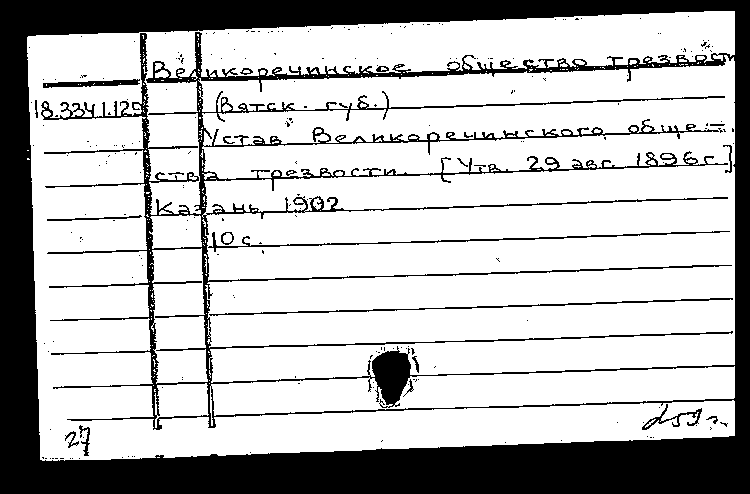 Великоречинское общество трезвости
18.334 1.129 (Вятск. губ.)
Устав Великоречинского обще=
ства трезвости. [Утв. 29 авг. 1896 г.]
Казань, 1902
10 с.
27